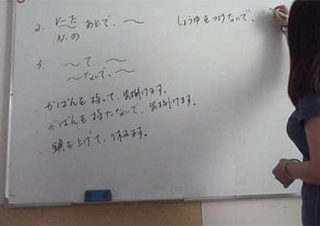 2. V-た あとで、～
N. の
しょうゆをつけないで、
3. ～て、～
～ないで、～
かばんを持って、出掛けます。
かばんを持たないで、出掛けます。
頭を上げて、